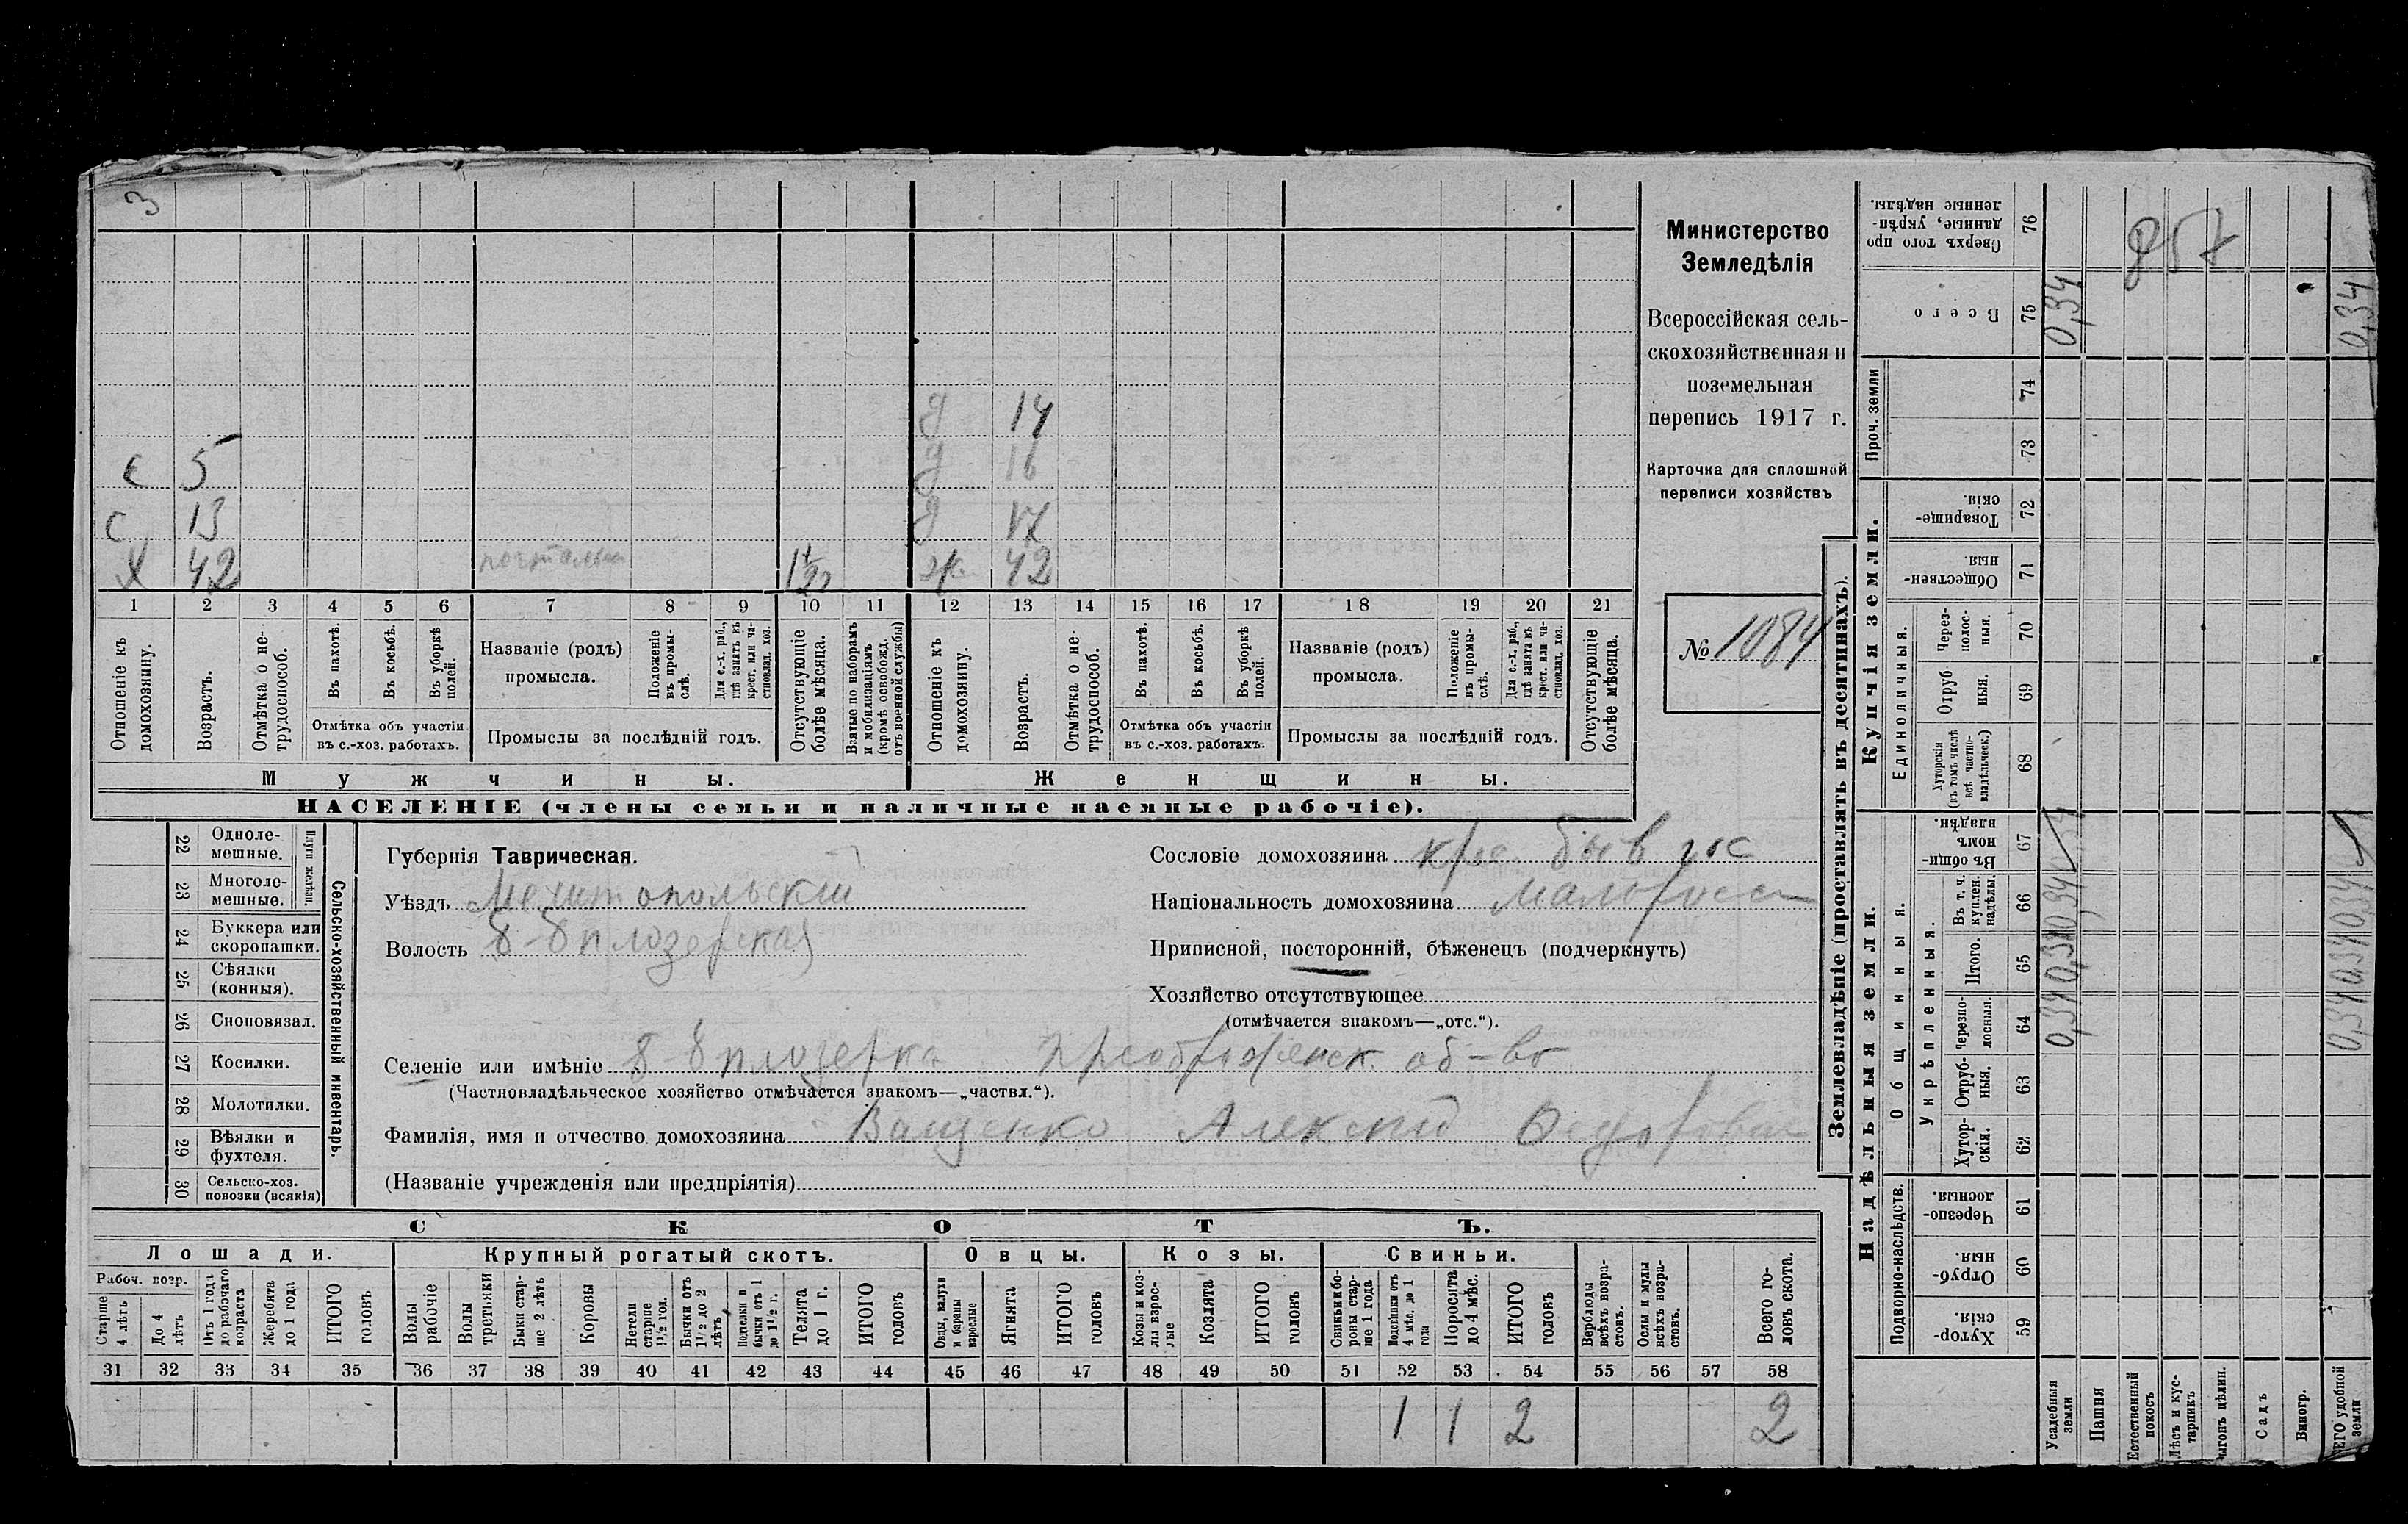 3
д 14
с 5 д 16
с 13 д 17
х 42 1½ ж 42
1 2 3 4 5 6 7 8 9 10 11 12 13 14 15 16 17 18 19 20 21
Отношеніе къ домохозяину.
Возрастъ.
Отмѣтка о не-
трудоспособ.
Въ пахотѣ.
Въ косьбѣ.
Въ уборкѣ полей.
Отмѣтка объ участіи
въ с.-хоз. работахъ.
Названіе (родъ)
промысла.
Положеніе
въ промы-
слѣ.
Для с.-х. раб.,
гдѣ занятъ въ
крест. или ча-
стновлад. хоз.
Промыслы за послѣдній годъ.
Отсутствующіе
болѣе мѣсяца.
Взятые по наборамъ
и мобилизаціямъ
(кромѣ освобожд.
отъ военной службы)
Отношеніе къ
домохозяину.
Возрастъ.
Отмѣтка о не-
трудоспособ.
Въ пахотѣ.
Въ косьбѣ.
Въ уборкѣ
полей.
Отмѣтка объ участіи
въ с.-хоз. работахъ.
Названіе (родъ)
промысла.
Положеніе
въ промы-
слѣ.
Для с.-х. раб.,
гдѣ занята въ
крест. или ча-
стновлад. хоз.
Промыслы за послѣдній годъ.
Отсутствующіе
болѣе мѣсяца.
Мужчины.
Женщины.
НАСЕЛЕНІЕ (члены семьи и наличные наемные рабочіе).
Министерство
Земледѣлія
Всероссійская сель-
скохозяйственная и
поземельная
перепись 1917 г.
Карточка для сплошной
переписи хозяйствъ
№ 1084
22 Одноле-
мешные.
23 Многоле-
мешные.
Плуги желѣзн.
24 Буккера или
скоропашки.
25 Сѣялки
(конныя).
26 Сноповязал.
27 Косилки.
28 Молотилки.
29 Вѣялки и
фухтеля.
30 Сельско-хоз.
повозки (всякія)
Сельско-хозяйственный инвентарь.
Губернія Таврическая.
Уѣздъ Мелитопольскій
Волость Б-Бѣлозерская
Сословіе домохозяина крес. быв гос
Національность домохозяина малоросс
Приписной, посторонній, бѣженецъ (подчеркнуть)
Хозяйство отсутствующее
(отмѣчается знакомъ—„отс.“).
Селеніе или имѣніе Б-Бѣлозерка Преображенск. об-во
(Частновладѣльческое хозяйство отмѣчается знакомъ—„частвл.“).
Фамилія, имя и отчество домохозяина Ващенко Алексей
(Названіе учрежденія или предпріятія)
СКОТЪ.
Лошади.
Рабоч. возр.
Старше
4 лѣтъ
До 4
лѣтъ
Отъ 1 года
до рабочаго
возраста
Жеребята
до 1 года
ИТОГО
головъ
Крупный рогатый скотъ.
Волы
рабочіе
Волы
третьяки
Быки стар-
ше 2 лѣтъ
Коровы
Нетели
старше
1½ год.
Бычки отъ
1½ до 2
лѣтъ
Подтелки и
бычки отъ 1
до 1½ г.
Телята
до 1 г.
ИТОГО
головъ
Овцы.
Овцы, валухи
и бараны
взрослые
Ягнята
ИТОГО
головъ
Козы.
Козы и коз-
лы взрос-
лые
Козлята
ИТОГО
головъ
Свиньи.
Свиньи и бо-
ровы стар-
ше 1 года
Подсвинки отъ
4 мѣс. до 1
года
Поросята
до 4 мѣс.
ИТОГО
головъ
Верблюды
всѣхъ возра-
стовъ.
Ослы и мулы
всѣхъ возра-
стовъ.
Всего го-
ловъ скота.
31 32 33 34 35 36 37 38 39 40 41 42 43 44 45 46 47 48 49 50 51 52 53 54 55 56 57 58
1 1 2 2
Землевладѣніе (проставлять въ десятинахъ).
Сверхъ того про
данные, укрѣп-
ленные надѣлы.
76
257
Всего
75
0,34 0,34
Проч. земли
74
73
Купчія земли.
Товарище-
скія.
72
Обществен-
ныя.
71
Единоличныя.
Через-
полос-
ныя.
70
Отруб
ныя.
69
Хуторскія
(въ томъ числѣ
всѣ частно-
владѣльческ.)
68
Надѣльныя земли.
Общинныя.
Въ общи-
номъ
владѣн.
67
Укрѣпленныя.
Въ т. ч.
куплен.
надѣлы.
66
Итого.
65
Черезпо-
лосныя.
64
0,34 0,34 0,34 0,34 0,34 0,34
Отруб-
ныя.
63
Хутор-
скія.
62
Подворно-наслѣдств.
Черезпо-
лосныя.
61
Отруб-
ныя.
60
Хутор-
скія.
59
Усадебныя
земли
Пашня
Естественный
покосъ
Лѣсъ и кус-
тарникъ
ыгонъ цѣлин.
Садъ
Виногр.
ЕГО удобной
земли